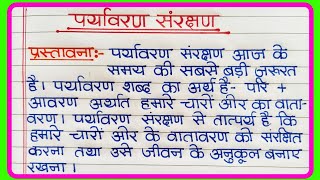 पर्यावरण संरक्षण
प्रस्तावना:- पर्यावरण संरक्षण आज के
समय की सबसे बड़ी ज़रूरत
है। पर्यावरण शब्द का अर्थ है- परि +
आवरण अर्थात हमारे चारों ओर का वाता-
वरण। पर्यावरण संरक्षण से तात्पर्य है कि
हमारे चारों ओर के वातावरण को संरक्षित
करना तथा उसे जीवन के अनुकूल बनाए
रखना।